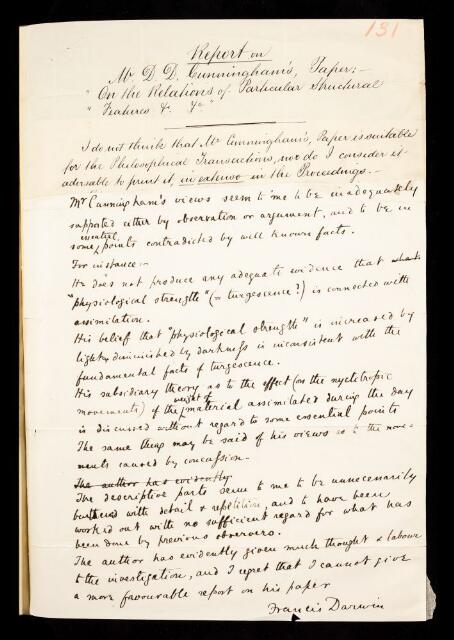 131
Report on
Mr D. D. Cunningham's, Paper:—
"On the Relations of Particular Structural
" Features &c. &c"
I do not think that Mr Cunningham's, Paper is suitable
for the Philosophical Transactions, nor do I consider it
advisable to print it, in extenso in the Proceedings.—
Mr Cunningham's views seem to me to be inadequately
supported either by observation or argument, and to be in
some essential points contradicted by well known facts.
For instance:—
He does not produce any adequate evidence that what
"physiological strength" (= turgescence?) is connected with
assimilation.
His belief that "physiological strength" is increased by
light & diminished by darkness is inconsistent with the
fundamental facts of turgescence.
His subsidiary theory as to the effect (on the nyctitropic
movements) of the weight of material assimilated during the day
is discussed without regard to some essential points
The same thing may be said of his views as to the move-
ments caused by concussion.
The author has evidently
The descriptive parts seem to me to be unnecessarily
burthened with detail & repetition, and to have been
worked out with no sufficient regard for what has
been done by previous observers.
The author has evidently given much thought & labour
to the investigation, and I regret that I cannot give
a more favourable report on his paper
Francis Darwin